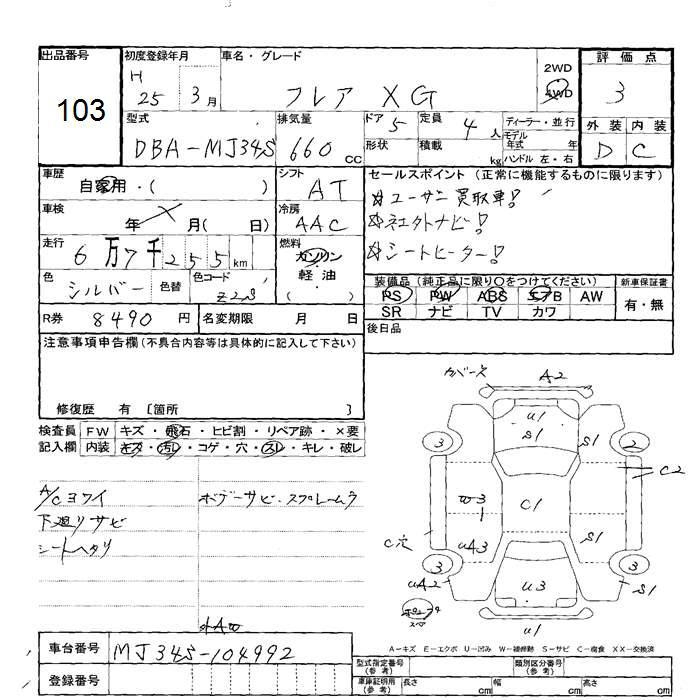 出品番号 初度登録年月 車名・グレード 評価点
103
H 25 3月 フレア XG
2WD
4WD
3
型式 排気量 ドア 5 定員 4人 ディーラー・並行
DBA-MJ34S 660cc
形状 積載 kg
モデル
年式 年
ハンドル 左・右
外装 内装
D C
車歴 シフト セールスポイント(正常に機能するものに限ります)
自家用・( ) AT
☆ユーザー買取車!
車検 冷房
年 月( 日) AAC
☆社外ナビ!
走行 燃料
6万7千255km ガソリン
軽油
( )
☆シートヒーター!
色 シルバー 色替 色コード Z2S
装備品(純正品に限り○をつけてください) 新車保証書
PS PW ABS エアB AW 有・無
SR ナビ TV カワ
R券 8490円 名変期限 月 日
後日品
注意事項申告欄(不具合内容等は具体的に記入して下さい)
修復歴 有〔箇所 〕
検査員 FW キズ・飛石・ヒビ割・リペア跡・×要
記入欄 内装 キズ・汚レ・コゲ・穴・スレ・キレ・破レ
A/Cヨワイ ボデーサビ・スプレームラ
下廻リサビ
シートヘタリ
カバーズ A2
U1
S1 S1
3 2
C2
W3
1 C1
C穴 UA3 S1
3 3
UA2 U3 S1
スペア
U1
A-キズ E-エクボ U-凹み W-補修跡 S-サビ C-腐食 XX-交換済
車台番号 MJ34S-104992
登録番号
型式指定番号(参考) 類別区分番号(参考)
車庫証明用(参考) 長さ cm 幅 cm 高さ cm